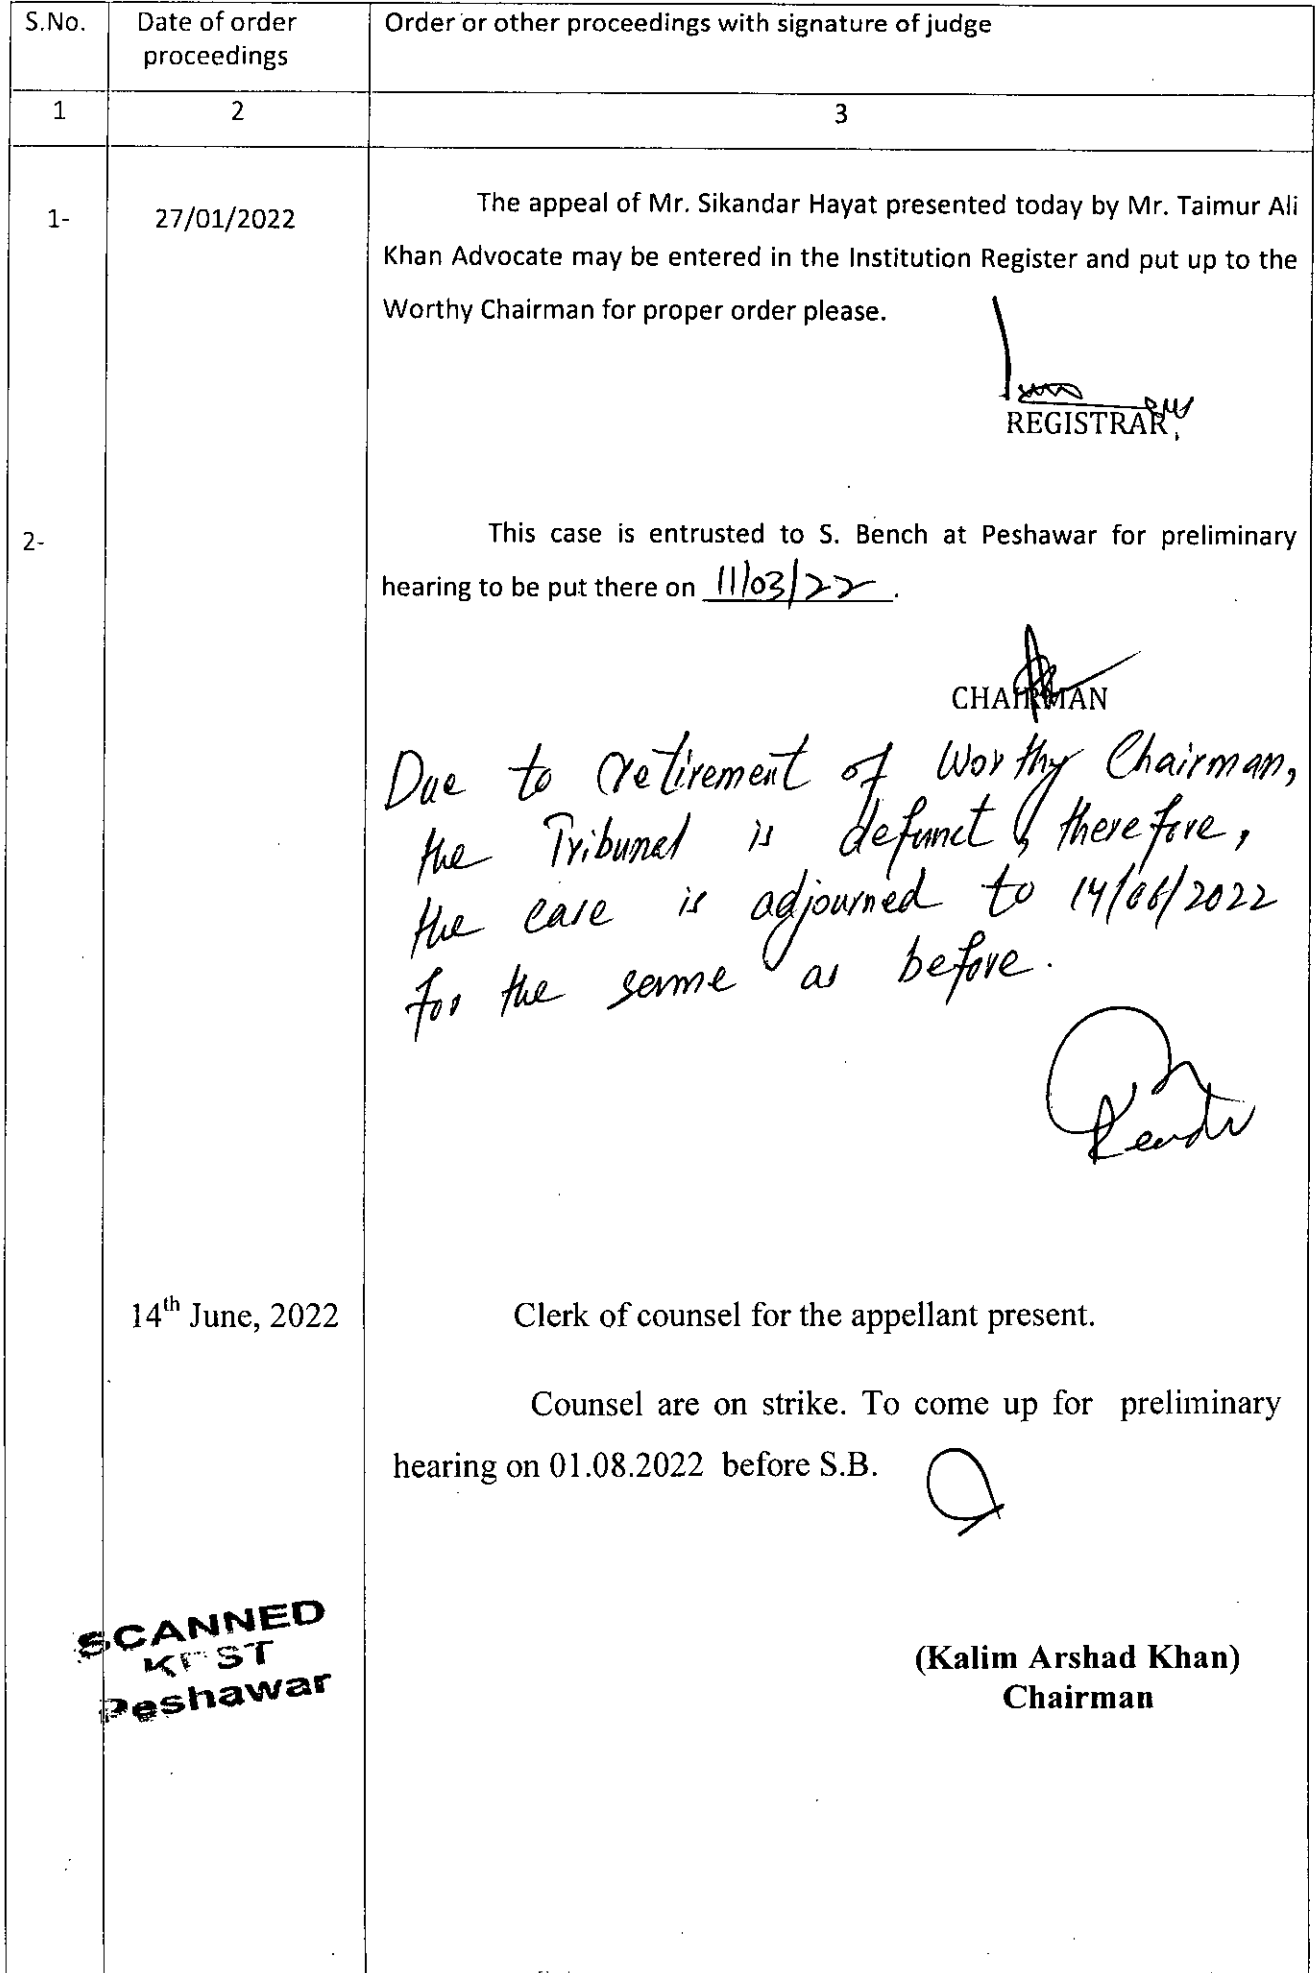 S.No.
Date of order
proceedings
Order or other proceedings with signature of judge
1
2
3
1-
27/01/2022
The appeal of Mr. Sikandar Hayat presented today by Mr. Taimur Ali
Khan Advocate may be entered in the Institution Register and put up to the
Worthy Chairman for proper order please.
REGISTRAR
2-
This case is entrusted to S. Bench at Peshawar for preliminary
hearing to be put there on 11/03/22.
CHAIRMAN
Due to retirement of Worthy Chairman,
the Tribunal is defunct, therefore,
the case is adjourned to 14/06/2022
for the same as before.
14th June, 2022
Clerk of counsel for the appellant present.
Counsel are on strike. To come up for preliminary
hearing on 01.08.2022 before S.B.
(Kalim Arshad Khan)
Chairman
SCANNED
KPST
Peshawar